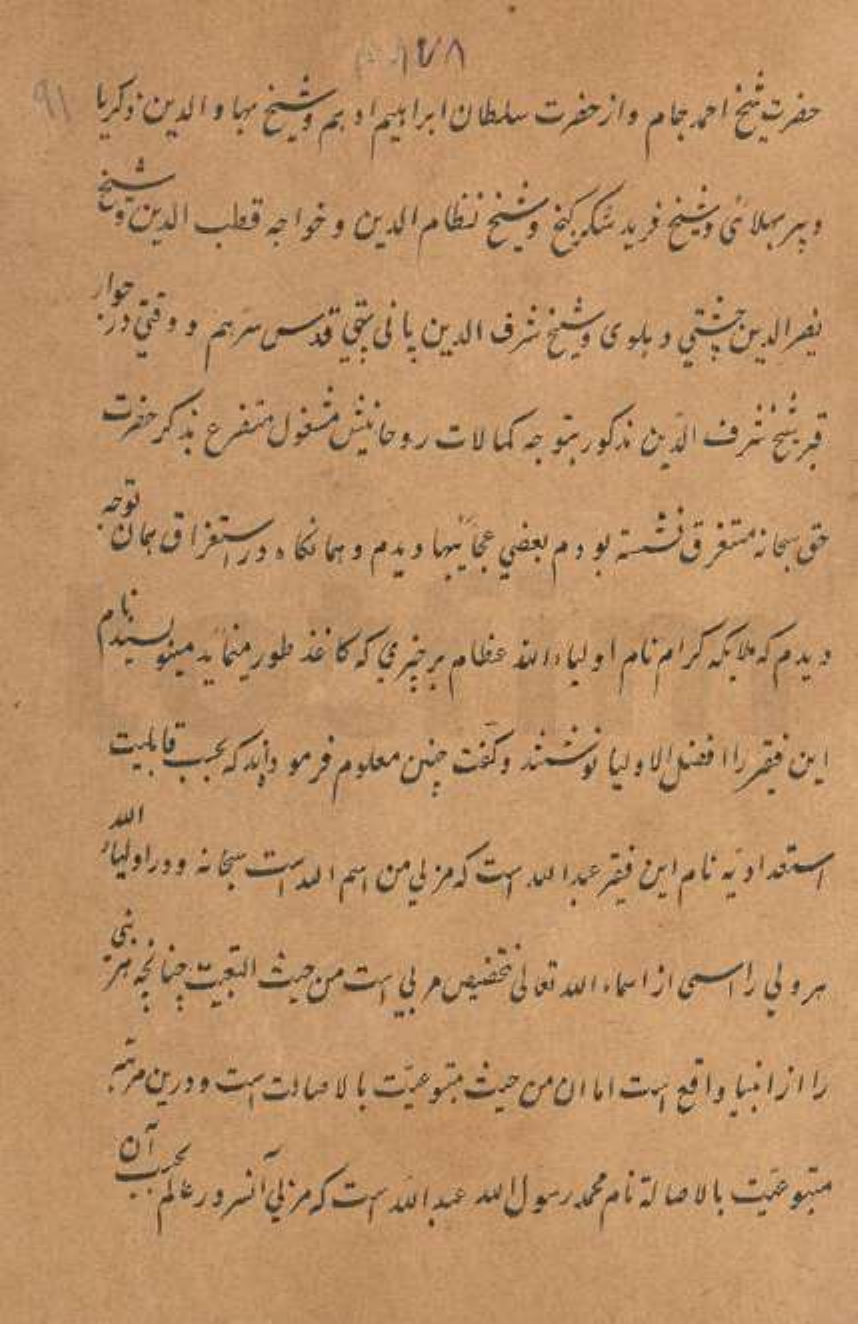 ۱۷۸
۹۱
حضرت شیخ احمد جام و از حضرت سلطان ابراهیم ادهم و شیخ بهاو الدین زکریا
و پیر بهلائی و شیخ فرید شکر کنج و شیخ نظام الدین و خواجه قطب الدین و شیخ
نصیر الدین چشتی دهلوی و شیخ شرف الدین پانی پتی قدس سرهم و وقتی در جوار
قبر شیخ شرف الدین مذکور بتوجه کمالات روحانیتش مشغول متفرع بذکر حضرت
حق سبحانه مستغرق نشسته بودم بعضی عجائبها دیدم و همانکاه در استغراق همان توجه
دیدم که ملایکه کرام نام اولیاء الله عظام بر چیزی که کاغذ طور مینماید مینویسند نام
این فقیر را افضل الاولیا نوشتند و کفت چنین معلوم فرمودند که بحسب قابلیت
استعدادیه نام این فقیر عبد الله است که مربی من اسم الله است سبحانه و در اولیاء الله
هر ولی را اسمی از اسماء الله تعالی بتخصیص مربی است من حیث التبعیت چنانچه هر نبی
را از انبیا واقع است اما ان من حیث متبوعیت بالاصالت است و درین مرتبه
متبوعیت بالاصالة نام محمد رسول الله عبد الله است که مربی آنسرور عالم بحسب آن